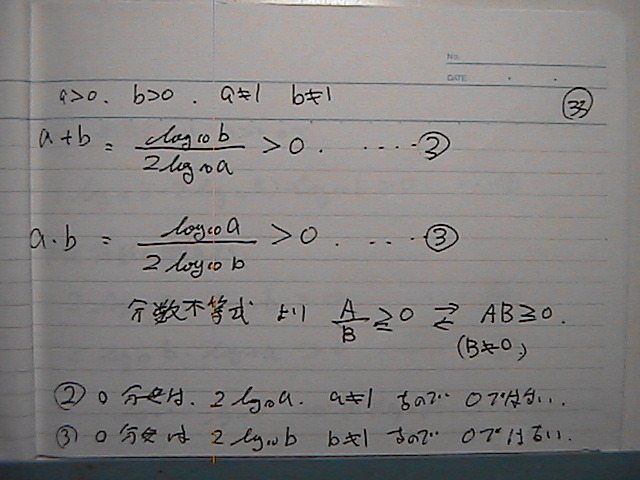 No.
DATE
a>0. b>0. a≠1 b≠1 ㉝
a+b = log₁₀b / 2log₁₀a > 0. ····②
a·b = log₁₀a / 2log₁₀b > 0. ····③
分数不等式 より A/B ≧ 0 ⇄ AB ≧ 0.
(B≠0,)
② の 分母は. 2log₁₀a. a≠1 なので 0ではない.
③ の 分母は 2log₁₀b b≠1 なので 0ではない.